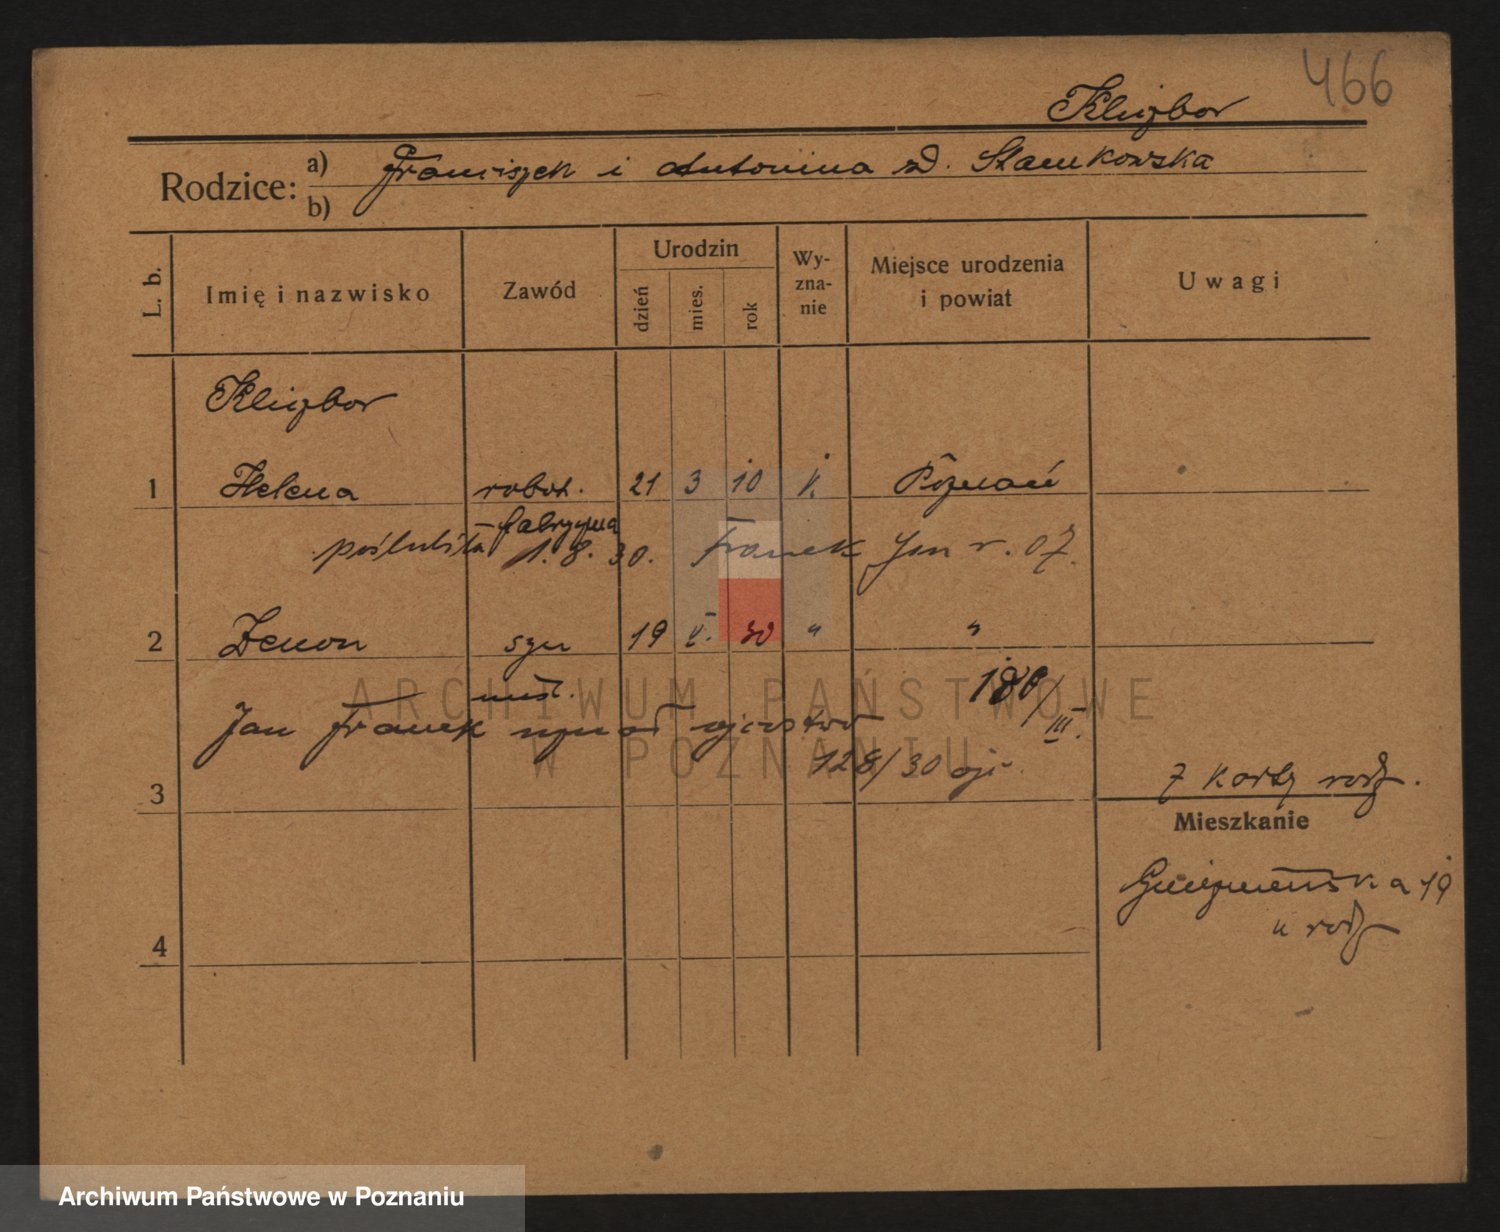 466
Kliczbor
Rodzice: a) Franciszek i Antonina zd. Stankowska
b)
L. b. Imię i nazwisko Zawód Urodzin dzień mies. rok Wy-zna-nie Miejsce urodzenia i powiat Uwagi
Kliczbor
1 Helena robot. 21 3 10 k. Poznań
fabryczna
poślubiła 1.8.30. Franek Jan r. 07.
2 Zenon syn 19 V. 30 " "
Jan Franek uznał ojcostwo III.
128/30
3 z karty rodz.
Mieszkanie
Gnieźnieńska 19
u rodz
4
ARCHIWUM PAŃSTWOWE
W POZNANIU
Archiwum Państwowe w Poznaniu